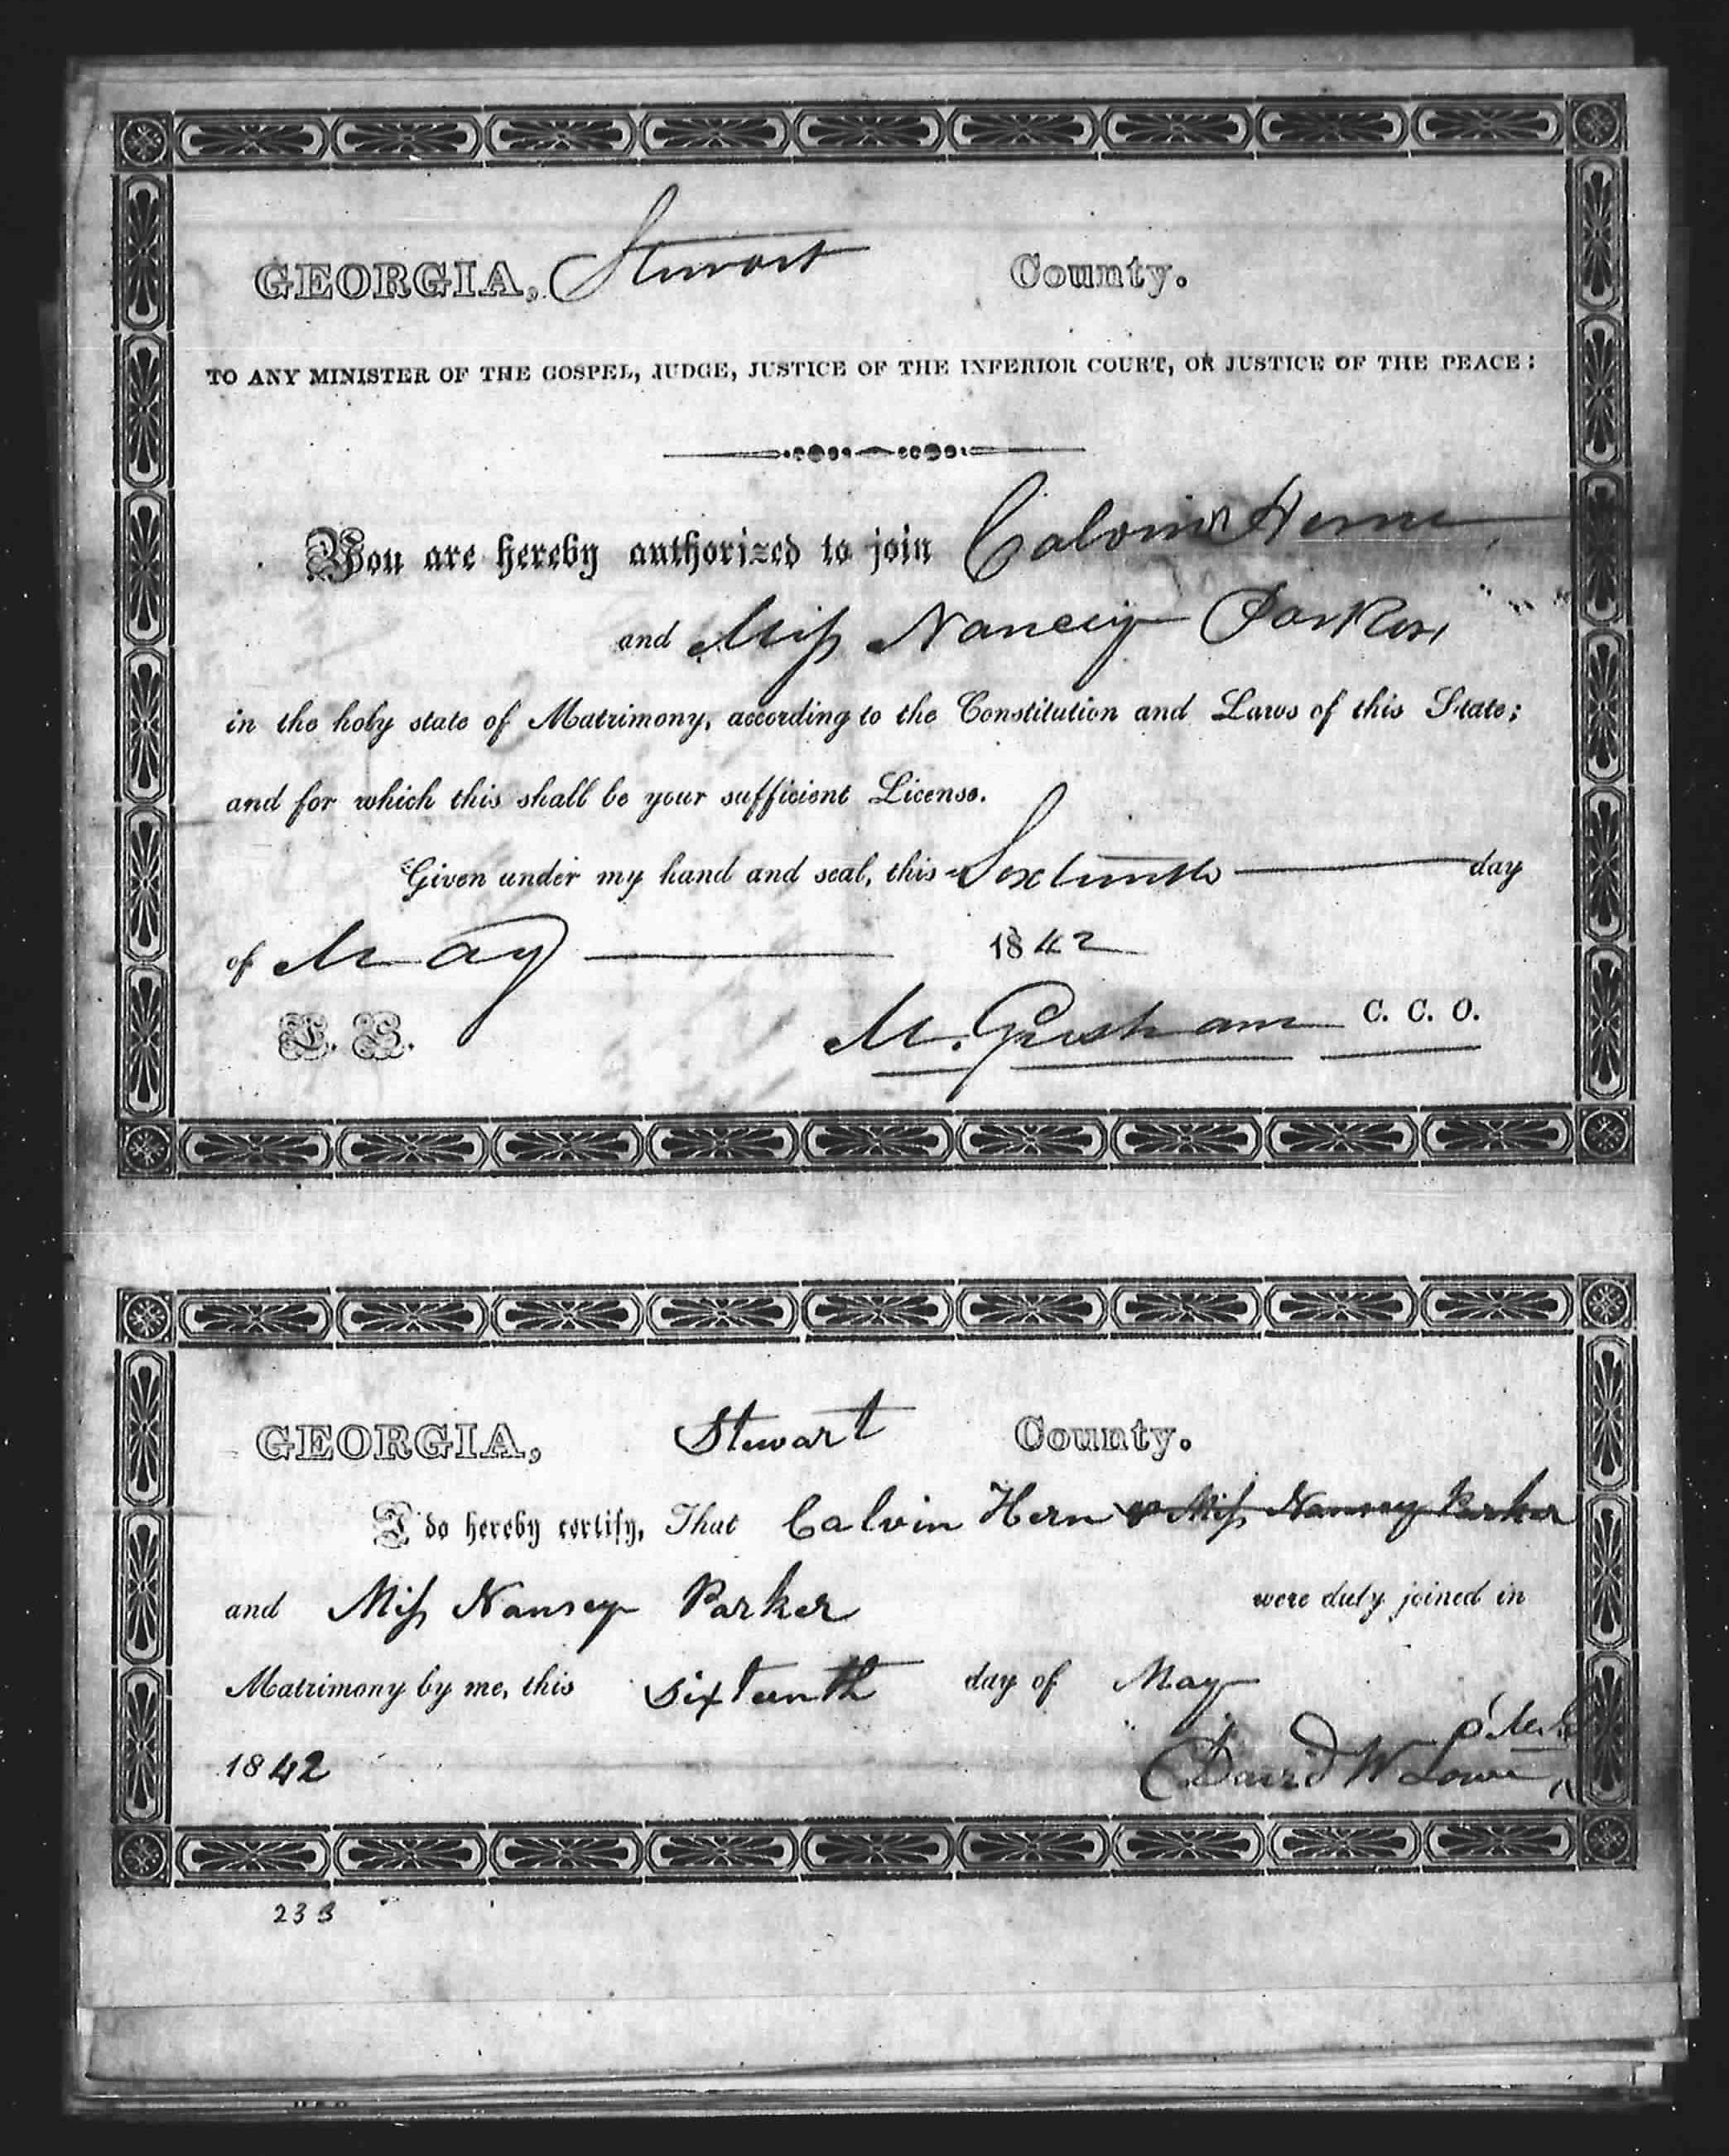 GEORGIA, Stewart County.
TO ANY MINISTER OF THE GOSPEL, JUDGE, JUSTICE OF THE INFERIOR COURT, OR JUSTICE OF THE PEACE:
You are hereby authorized to join Calvin Hern
and Miss Nancy Parker
in the holy state of Matrimony, according to the Constitution and Laws of this State;
and for which this shall be your sufficient License.
Given under my hand and seal, this Sixteenth day
of May 1842
L. S. M. Gresham C. C. O.
GEORGIA, Stewart County.
I do hereby certify, That Calvin Hern & Miss Nansey Parker
and Miss Nansey Parker were duly joined in
Matrimony by me, this sixteenth day of May
1842 David W Lowe
233